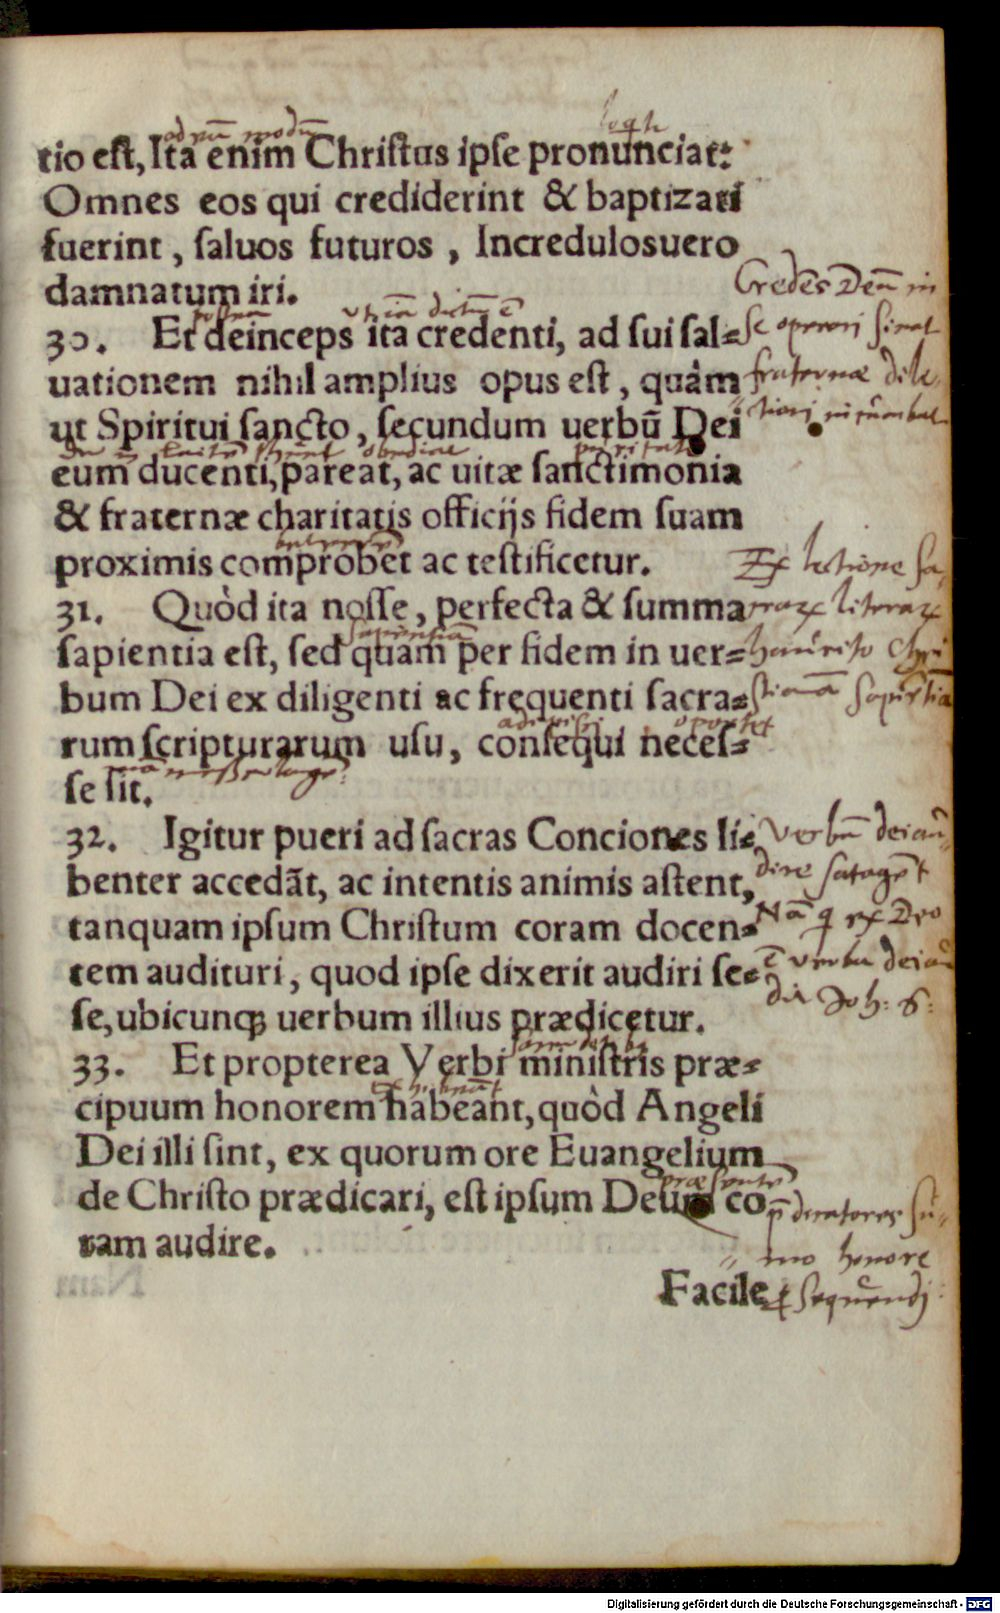 tio est, Ita enim Christus ipse pronunciat:
Omnes eos qui crediderint & baptizati
fuerint, saluos futuros, Incredulosuero
damnatum iri.
30. Et deinceps ita credenti, ad sui sal=
uationem nihil amplius opus est, quàm
ut Spiritui sancto, secundum uerbũ Dei
eum ducenti, pareat, ac uitæ sanctimonia
& fraternæ charitatis officijs fidem suam
proximis comprobet ac testificetur.
31. Quòd ita nosse, perfecta & summa
sapientia est, sed quam per fidem in uer=
bum Dei ex diligenti ac frequenti sacra=
rum scripturarum usu, consequi neces=
se sit.
32. Igitur pueri ad sacras Conciones li=
benter accedãt, ac intentis animis astent,
tanquam ipsum Christum coram docen=
tem audituri, quod ipse dixerit audiri se=
se, ubicunqꝫ uerbum illius prædicetur.
33. Et propterea Verbi ministris præ=
cipuum honorem habeant, quòd Angeli
Dei illi sint, ex quorum ore Euangelium
de Christo prædicari, est ipsum Deum co
ram audire.
Facile
Credẽs Deũ in
se operari sinat
fraternæ dile
Ex lectione sa
literaꝝ
haurito Chri
stianã sapiẽtiã
verbũ dei aũ
dire satagẽt
Nã q̃ ex Deo
ẽ verba dei au
dit Joh: 8:
mo honore
Digitalisierung gefördert durch die Deutsche Forschungsgemeinschaft - DFG